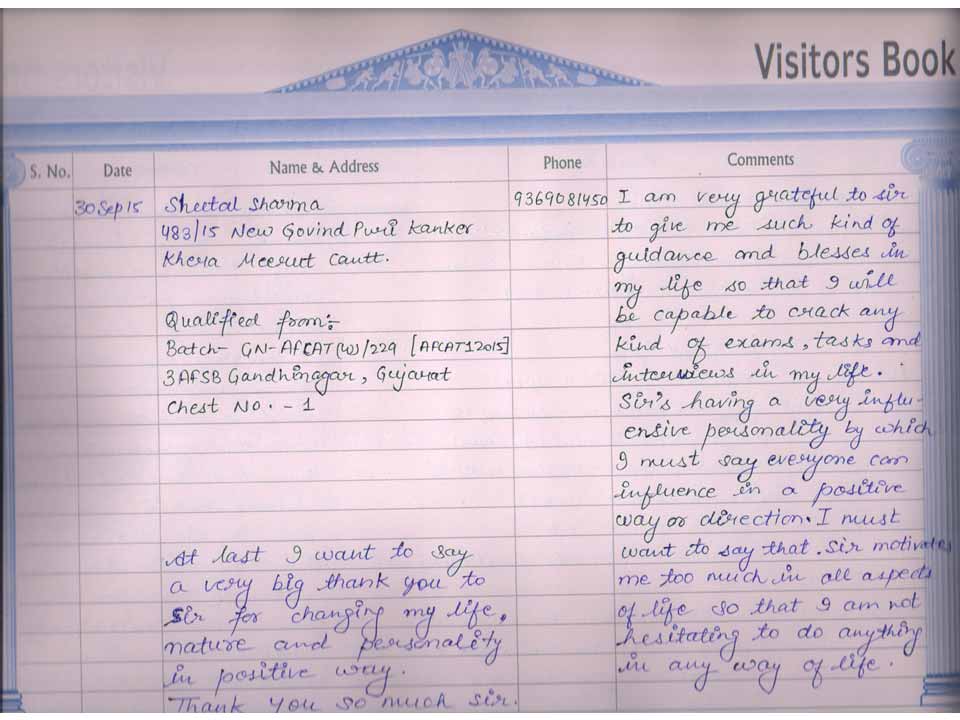 Visitors Book
S. No.
Date
Name & Address
Phone
Comments
30 Sep 15
Sheetal Sharma
483/15 New Govind Puri Kanker
Khera Meerut Cantt.
Qualified from:-
Batch- GN-AFCAT(W)/229 [AFCAT12015]
3AFSB Gandhinagar, Gujarat
Chest No. - 1
At last I want to say
a very big thank you to
sir for changing my life,
nature and personality
in positive way.
Thank you so much sir.
9369081450
I am very grateful to sir
to give me such kind of
guidance and blesses in
my life so that I will
be capable to crack any
kind of exams, tasks and
interviews in my life.
Sir's having a very influ-
ensive personality by which
I must say everyone can
influence in a positive
way or direction. I must
want to say that. Sir motivates
me too much in all aspects
of life so that I am not
hesitating to do anything
in any way of life.